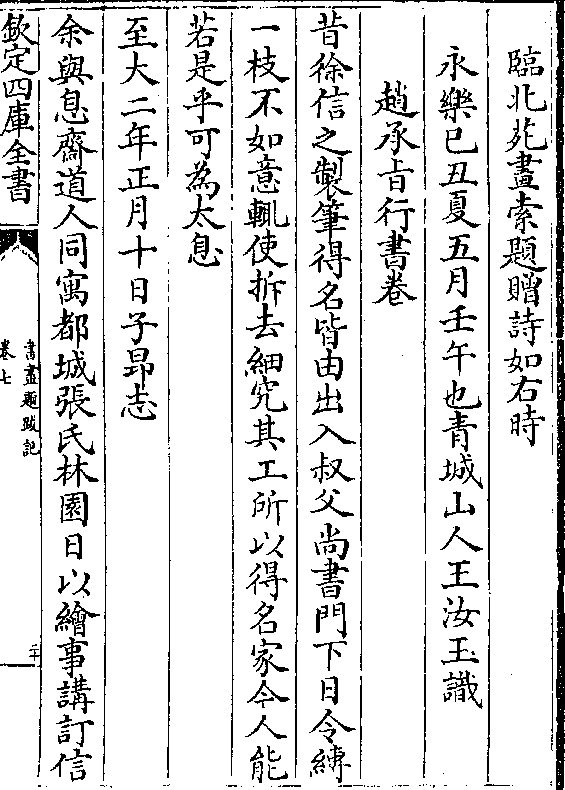 臨北苑畫索題贈詩如右時
永樂己丑夏五月壬午也青城山人王汝玉識
趙承旨行書卷
昔徐信之製筆得名皆由出入叔父尚書門下日令縛
一枝不如意輒使拆去細究其工所以得名家今人能
若是乎可為太息
至大二年正月十日子昂志
余與息齋道人同寓都城張氏林園日以繪事講訂信
欽定四庫全書
書畫題跋記
卷七
二十